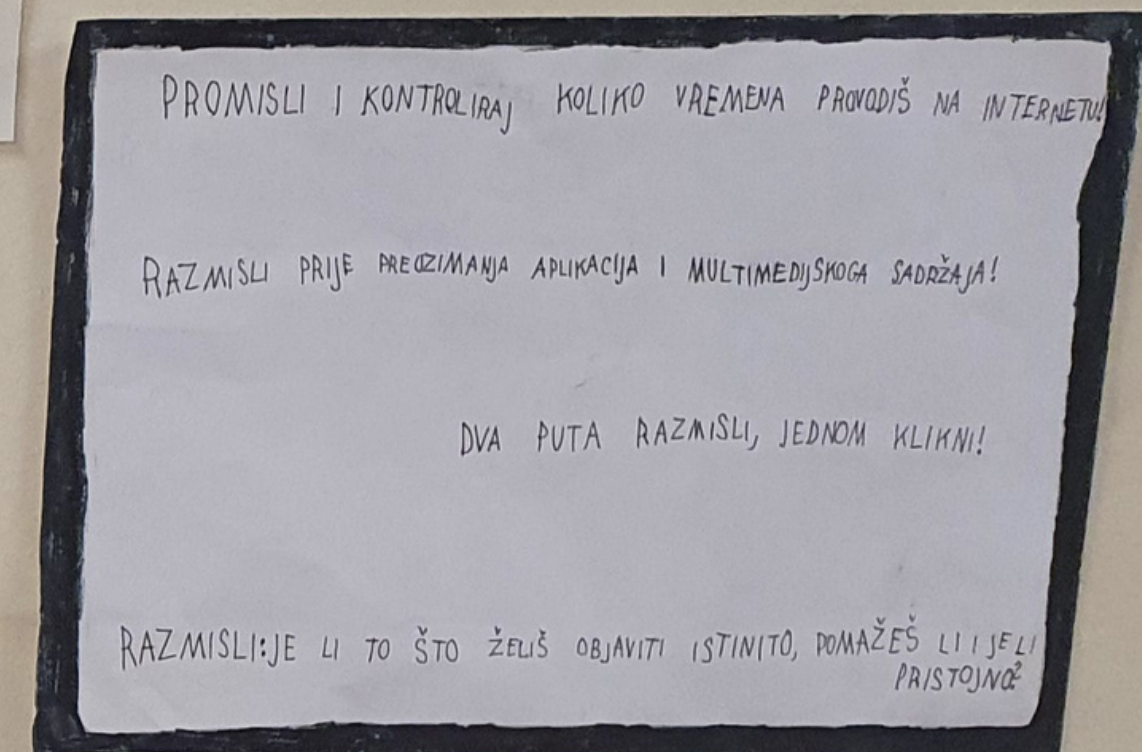 PROMISLI I KONTROLIRAJ KOLIKO VREMENA PROVODIŠ NA INTERNETU!
RAZMISLI PRIJE PREUZIMANJA APLIKACIJA I MULTIMEDIJSKOGA SADRŽAJA!
DVA PUTA RAZMISLI, JEDNOM KLIKNI!
RAZMISLI: JE LI TO ŠTO ŽELIŠ OBJAVITI ISTINITO, POMAŽEŠ LI I JE LI
PRISTOJNO?